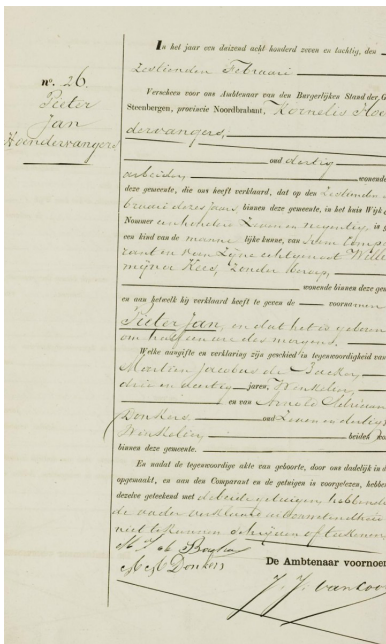 nº. 26.
Pieter
Jan
Hoendervangers
In het jaar een duizend acht honderd zeven en tachtig, den
zestienden Februari
Verscheen voor ons Ambtenaar van den Burgerlijken Stand der G
Steenbergen, provincie Noordbrabant, Kornelis Hoen
dervangers,
oud dertig
arbeider, wonende
deze gemeente, die ons heeft verklaard, dat op den
bruari dezes jaars, binnen deze gemeente, in het huis Wijk
Nommer een honderd zeven en negentig, is g
een kind van de manne lijke kunne, van hem Compa
rant en van zijne echtgenoot Wilhel
mijna Kees, zonder beroep,
wonende binnen deze gem
en aan hetwelk hij verklaard heeft te geven de voornamen
Pieter Jan, en dat het is geboren
om half een ure des morgens.
Welke aangifte en verklaring zijn geschied in tegenwoordigheid van
Marten Jacobus de
drie en dertig jaren, Winkelier,
en van Arnold Adriaan
Donkers oud zeven en dertig
Winkelier beiden
binnen deze gemeente.
En nadat de tegenwoordige akte van geboorte, door ons dadelijk in d
opgemaakt, en aan den Comparant en de getuigen is voorgelezen, hebbe
dezelve geteekend met de beide getuigen, hebbende
de vader verklaard
niet te kunnen schrijven of teekenen
Donkers
De Ambtenaar voornoem
J. J. van Loo